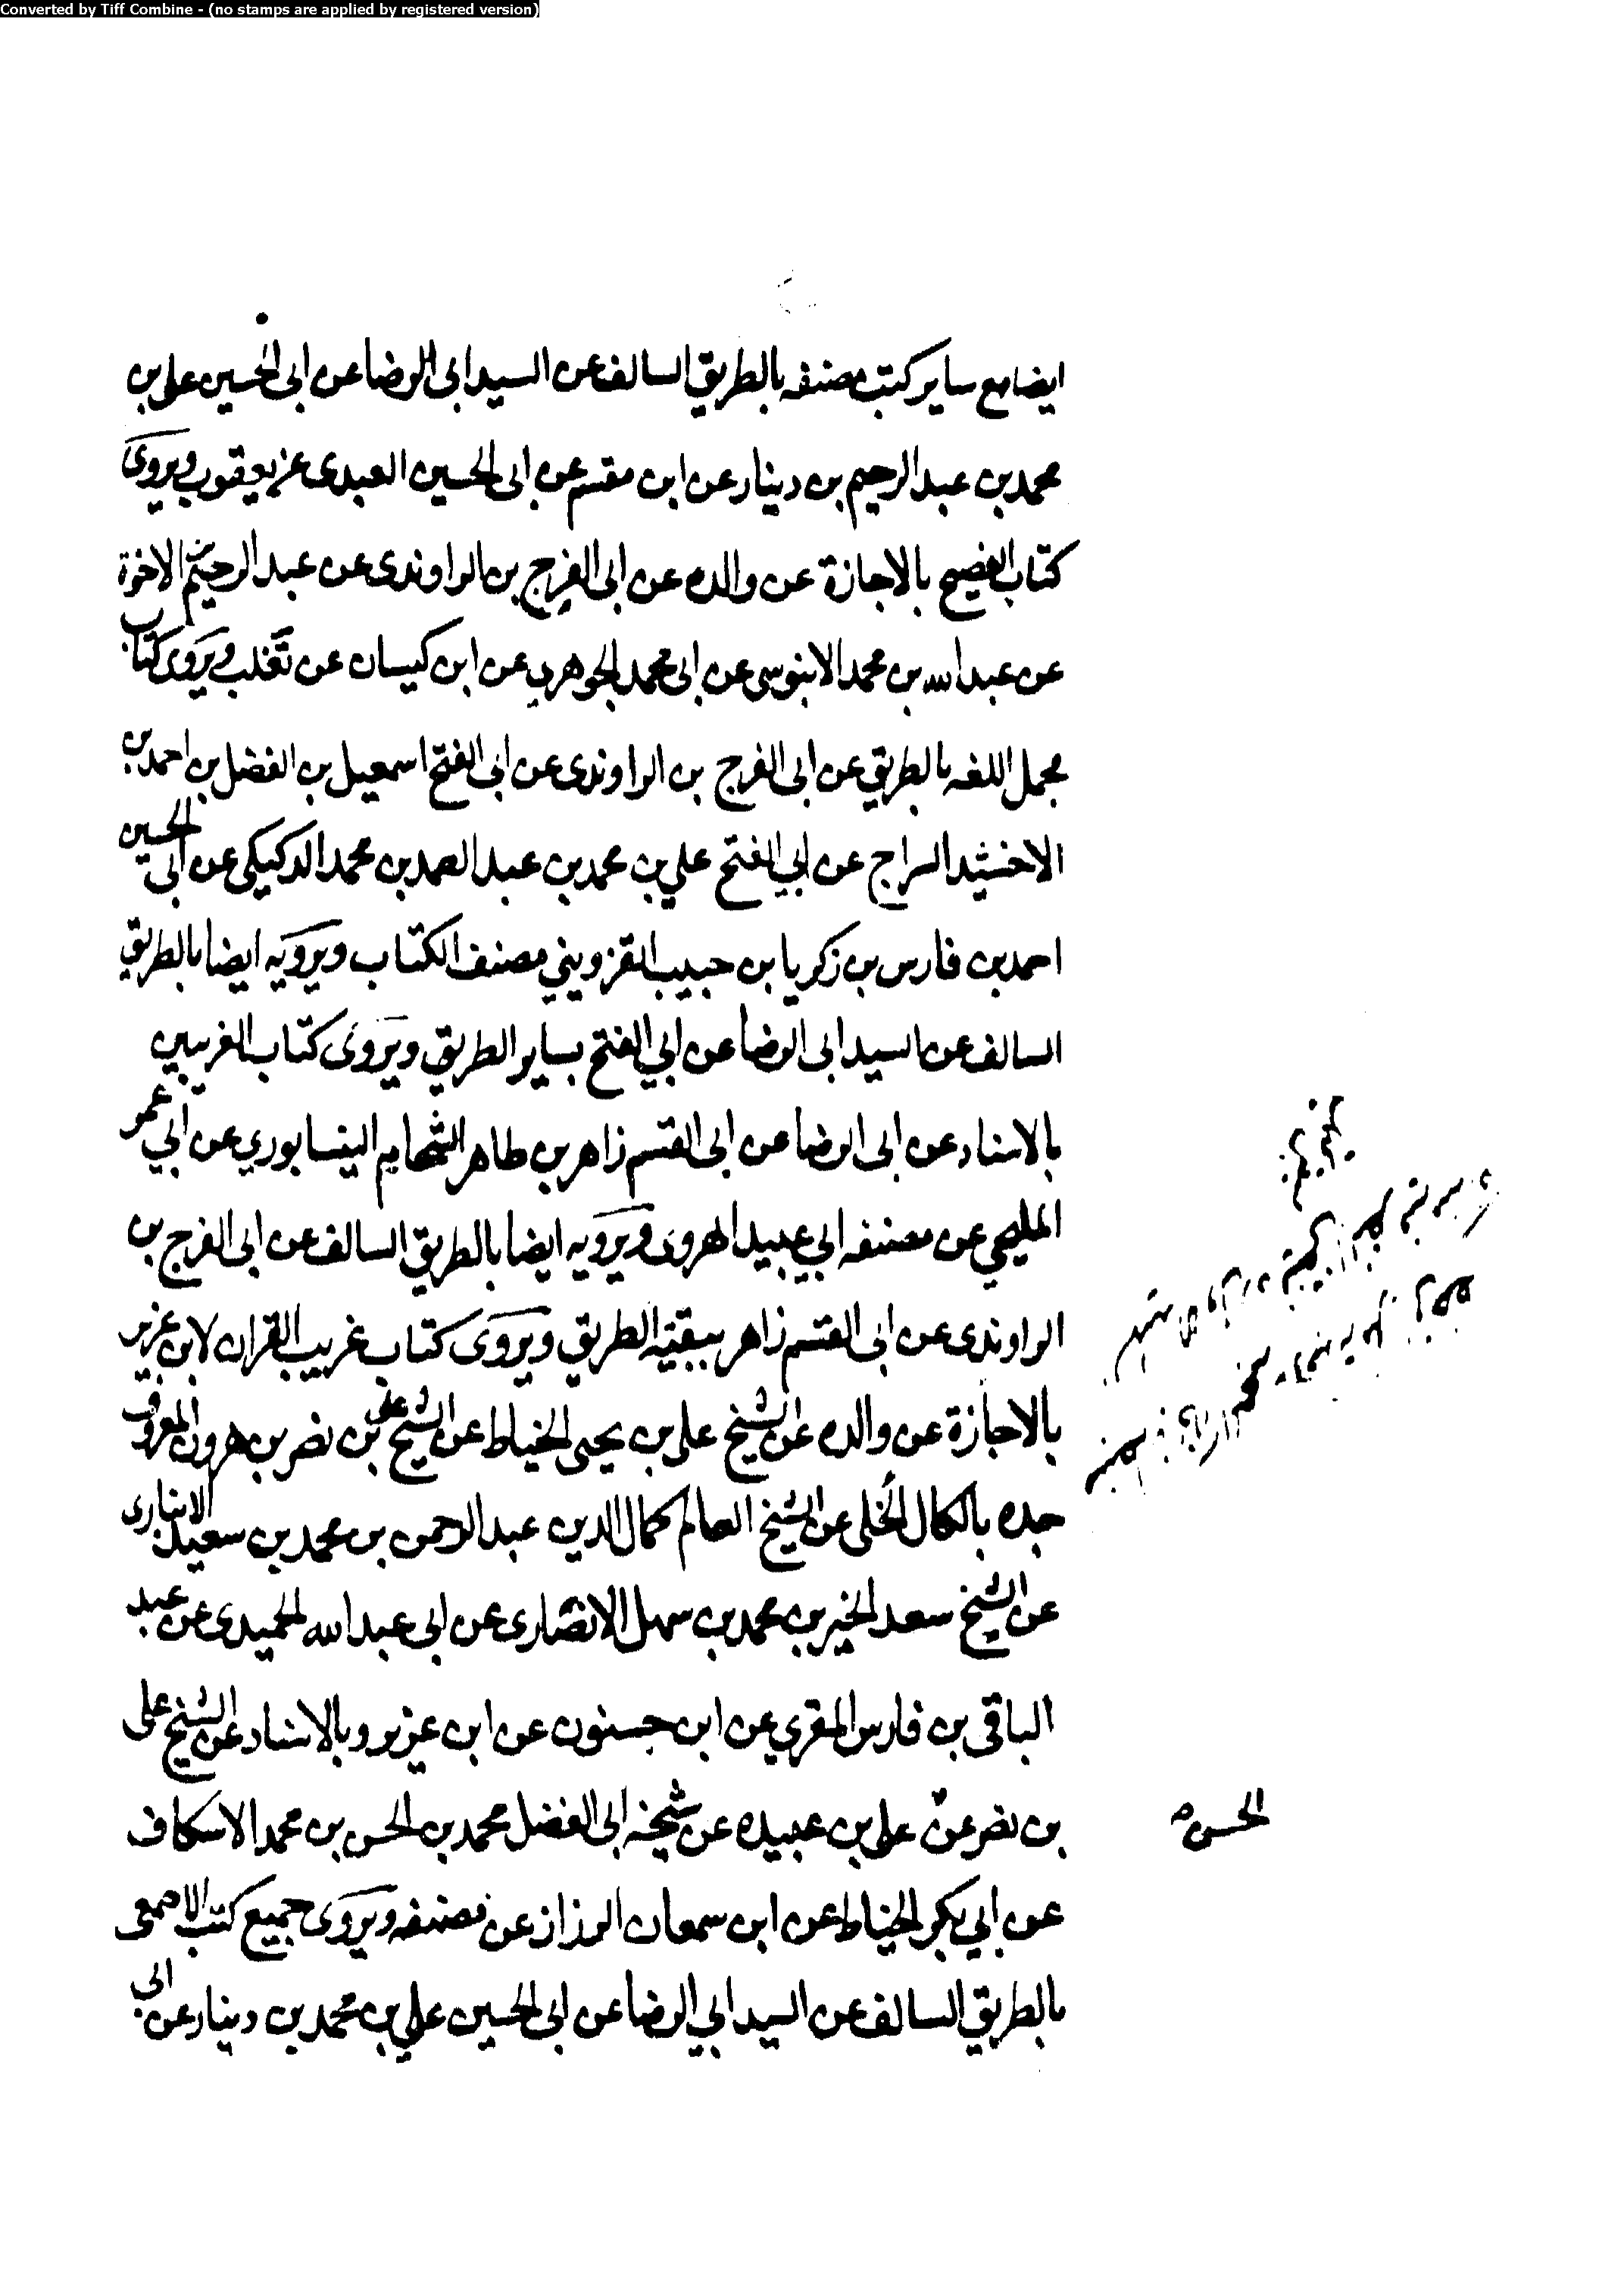 Converted by Tiff Combine - (no stamps are applied by registered version)
ايضا مع ساير كتب مصنفه بالطريق السالف عن السيد ابى الرضا عن ابى الحسين على بن
محمد بن عبد الرحيم بن دينار عن ابن مقسم عن ابى الحسين العبدى عن يعقوب ويروى
كتاب الفصيح بالاجازة عن والده عن ابى الفرج بن الراوندى عن عبد الرحيم الاخوة
عن عبد الله بن محمد الابنوسى عن ابى محمد الجوهرى عن ابن كيسان عن تغلب ويروى كتاب
مجمل اللغه بالطريق عن ابى الفرج بن الراوندى عن ابى الفتح اسمعيل بن الفضل بن احمد بن
الاخشيد السراج عن ابي الفتح علي بن محمد بن عبد الصمد بن محمد الدكيكى عن ابى الحسين
احمد بن فارس بن زكريا بن حبيب القزويني مصنف الكتاب ويرويه ايضا بالطريق
السالف عن السيد ابى الرضا عن ابي الفتح بساير الطريق ويروى كتاب الغريبين
بالاسناد عن ابى الرضا عن ابى القسم زاهر بن طاهر الشحامي النيسابوري عن ابي عمر
المليحي عن مصنفه ابي عبيد الهروى ويرويه ايضا بالطريق السالف عن ابى الفرج بن
الراوندى عن ابى القسم زاهر ببقية الطريق ويروى كتاب غريب القران لابن عزيز
بالاجازة عن والده عن الشيخ على بن يحيى الخياط عن الشيخ على بن نصر بن هرون المعروف
جده بالكال الحلى عن الشيخ العالم كمال الدين عبد الرحمن بن محمد بن سعيد الانبارى
عن الشيخ سعد الخير بن محمد بن سهل الانصارى عن ابى عبد الله الحميدى عن عبد
الباقى بن فارس المقري عن ابن حسنون عن ابن عزيز وبالاسناد عن الشيخ على
بن نصر عن على بن عبيده عن شيخه ابى الفضل محمد بن الحسن بن محمد الاسكاف
الحسن
عن ابي بكر الخياط عن ابن سمعان الرزاز عن مصنفه ويروى جميع كتب الاصمعى
بالطريق السالف عن السيد ابي الرضا عن ابى الحسين علي بن محمد بن دينار عن ابى